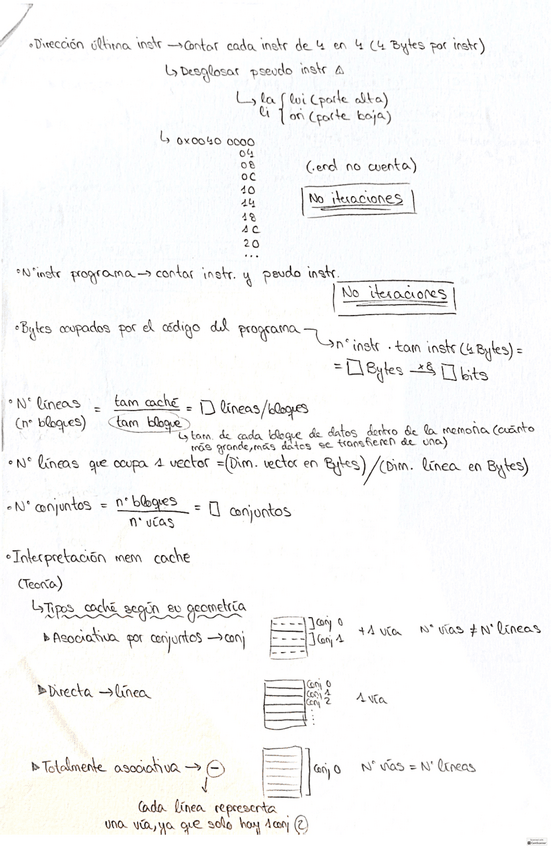 • Dirección última instr → Contar cada instr de 4 en 4 (4 Bytes por instr)
↳ Desglosar pseudo instr △
↳ la { lui (parte alta)
li { ori (parte baja)
↳ 0x0040 0000
04
08 (.end no cuenta)
0C
10 No iteraciones
14
18
1C
20
...
• N° instr programa → contar instr. y peudo instr.
No iteraciones
• Bytes ocupados por el código del programa
↳ n° instr · tam instr (4 Bytes) =
= □ Bytes ×8→ □ bits
• N° líneas = tam caché / tam bloque = □ líneas/bloques
(n° bloques)
↳ tam. de cada bloque de datos dentro de la memoria (cuánto
más grande, más datos se transfieren de una)
• N° líneas que ocupa 1 vector = (Dim. vector en Bytes) / (Dim. línea en Bytes)
• N° conjuntos = n° bloques / n° vías = □ conjuntos
• Interpretación mem cache
(Teoría)
↳ Tipos caché según su geometría
▷ Asociativa por conjuntos → conj
conj 0
conj 1
+1 vía N° vías ≠ N° líneas
▷ Directa → línea
conj 0
conj 1
conj 2
⋮
1 vía
▷ Totalmente asociativa → ⊖
conj 0 N° vías = N° líneas
Cada línea representa
una vía, ya que solo hay 1 conj